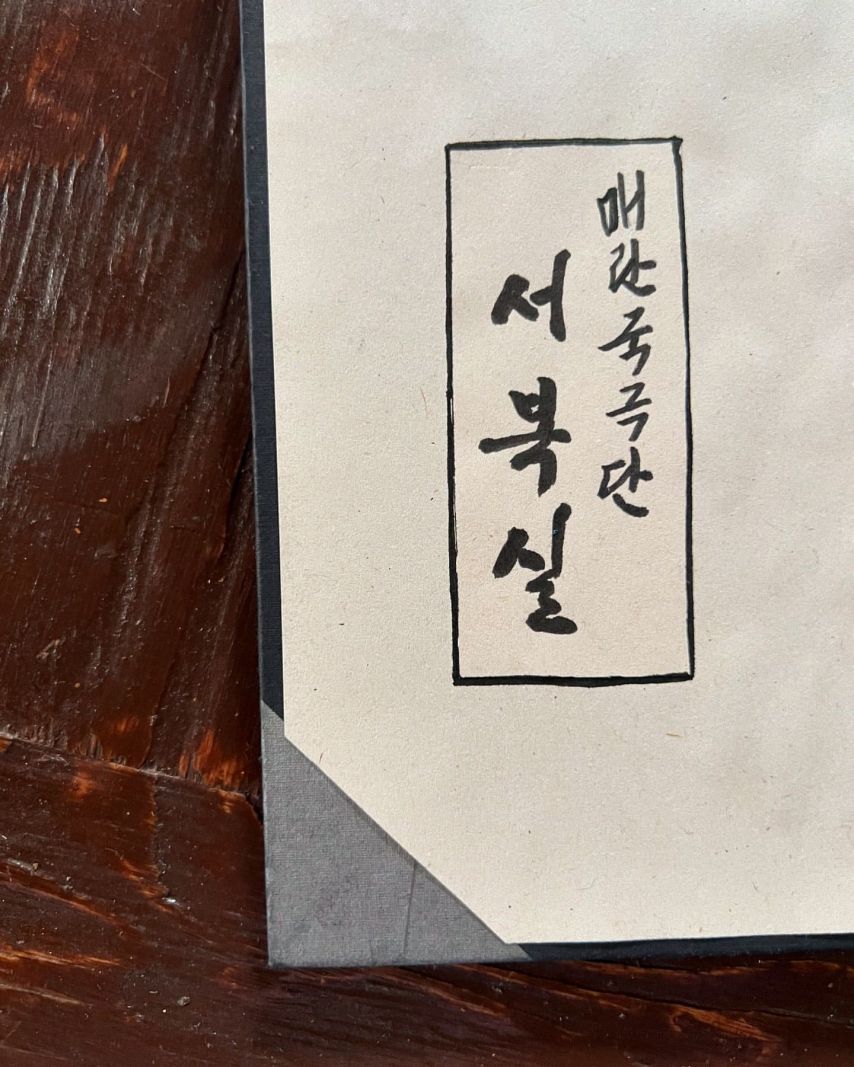 매란국극단
서복실